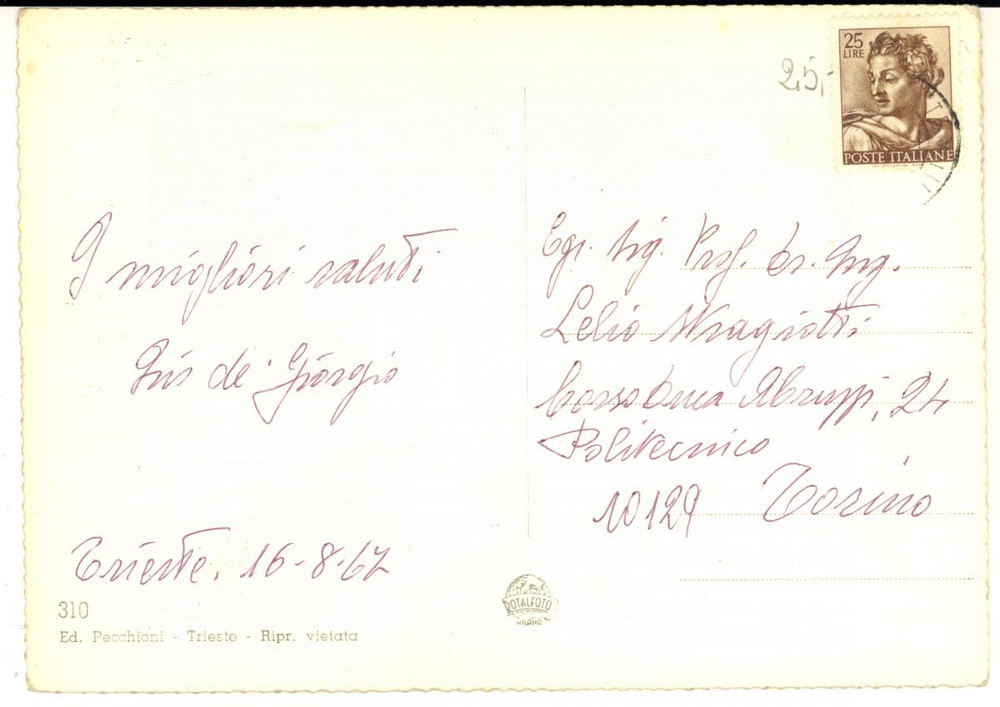 25,-
25
LIRE
POSTE ITALIANE
I migliori saluti
de Giorgio
Trieste, 16-8-67
Egr. Sig. Prof. Dr. Ing.
Lelio
Corso Duca Abruzzi, 24
Politecnico
10129 Torino
310
Ed. Pecchioni - Trieste - Ripr. vietata
ROTALFOTO
MILANO